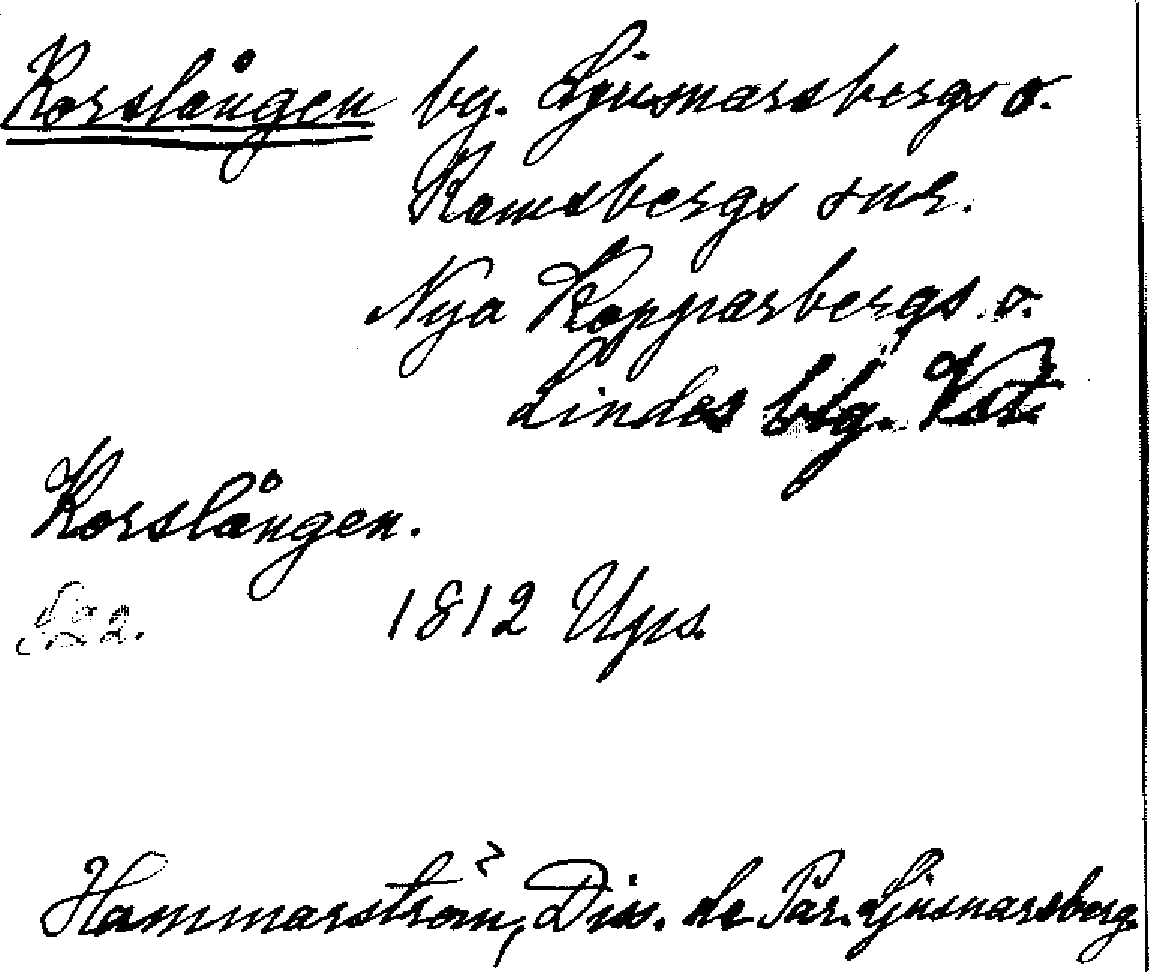 Korslången by. Ljusnarsbergs o.
Ramsbergs snr.
Nya Kopparbergs o.
Lindes blg. Vstm.
Korslången.
1812 Ups.
Hammarström, Diss. de Par. Ljusnarsberg.